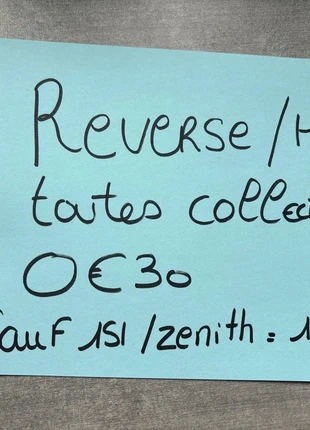 Reverse / H
toutes collec
0€30
Sauf 151 / zenith : 1